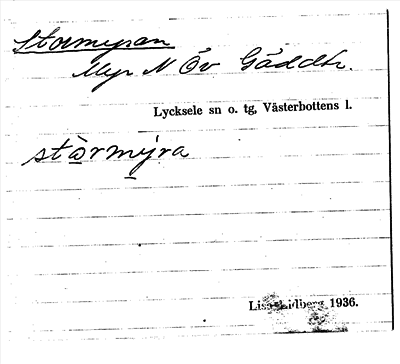 Stormyran
Myr N Öv Gäddtr.
Lycksele sn o. tg, Västerbottens l.
stàrmýra
Lisa Lidberg 1936.